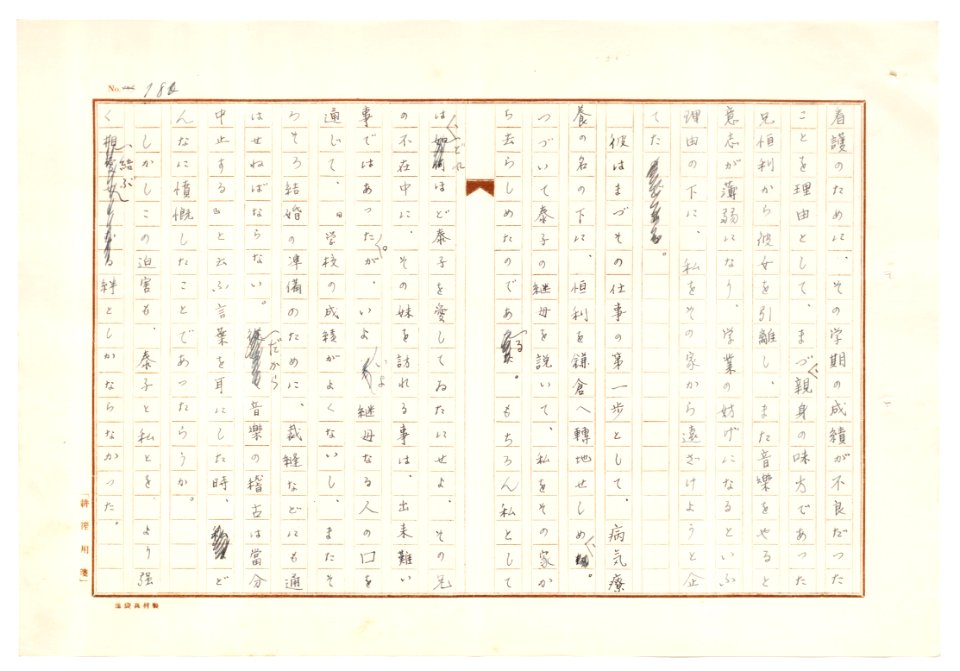 No. 18
看護のために、その学期の成績が不良だつた
ことを理由として、まづ親身の味方であつた
兄恒利から彼女を引離し、また音樂をやると
意志が薄弱になり、学業の妨げになるといふ
理由の下に、私をその家から遠ざけようと企
てた。
彼はまづその仕事の第一歩として、病気療
養の名の下に、恒利を鎌倉へ轉地せしめ。
つづいて泰子の継母を説いて、私をその家か
ら去らしめたのである。もちろん私として
はどれほど泰子を愛してゐたにせよ、その兄
の不在中に、その妹を訪れる事は、出来難い
事ではあつた。が、いよいよ継母なる人の口を
通じて、『学校の成績がよくないし、またそ
ろそろ結婚の準備のために、裁縫などにも通
はせねばならない。だから音樂の稽古は當分
中止する』と云ふ言葉を耳にした時、ど
んなに憤慨したことであつたらうか。
しかしこの迫害も、泰子と私とを、より強
く結ぶ絆としかならなかつた。